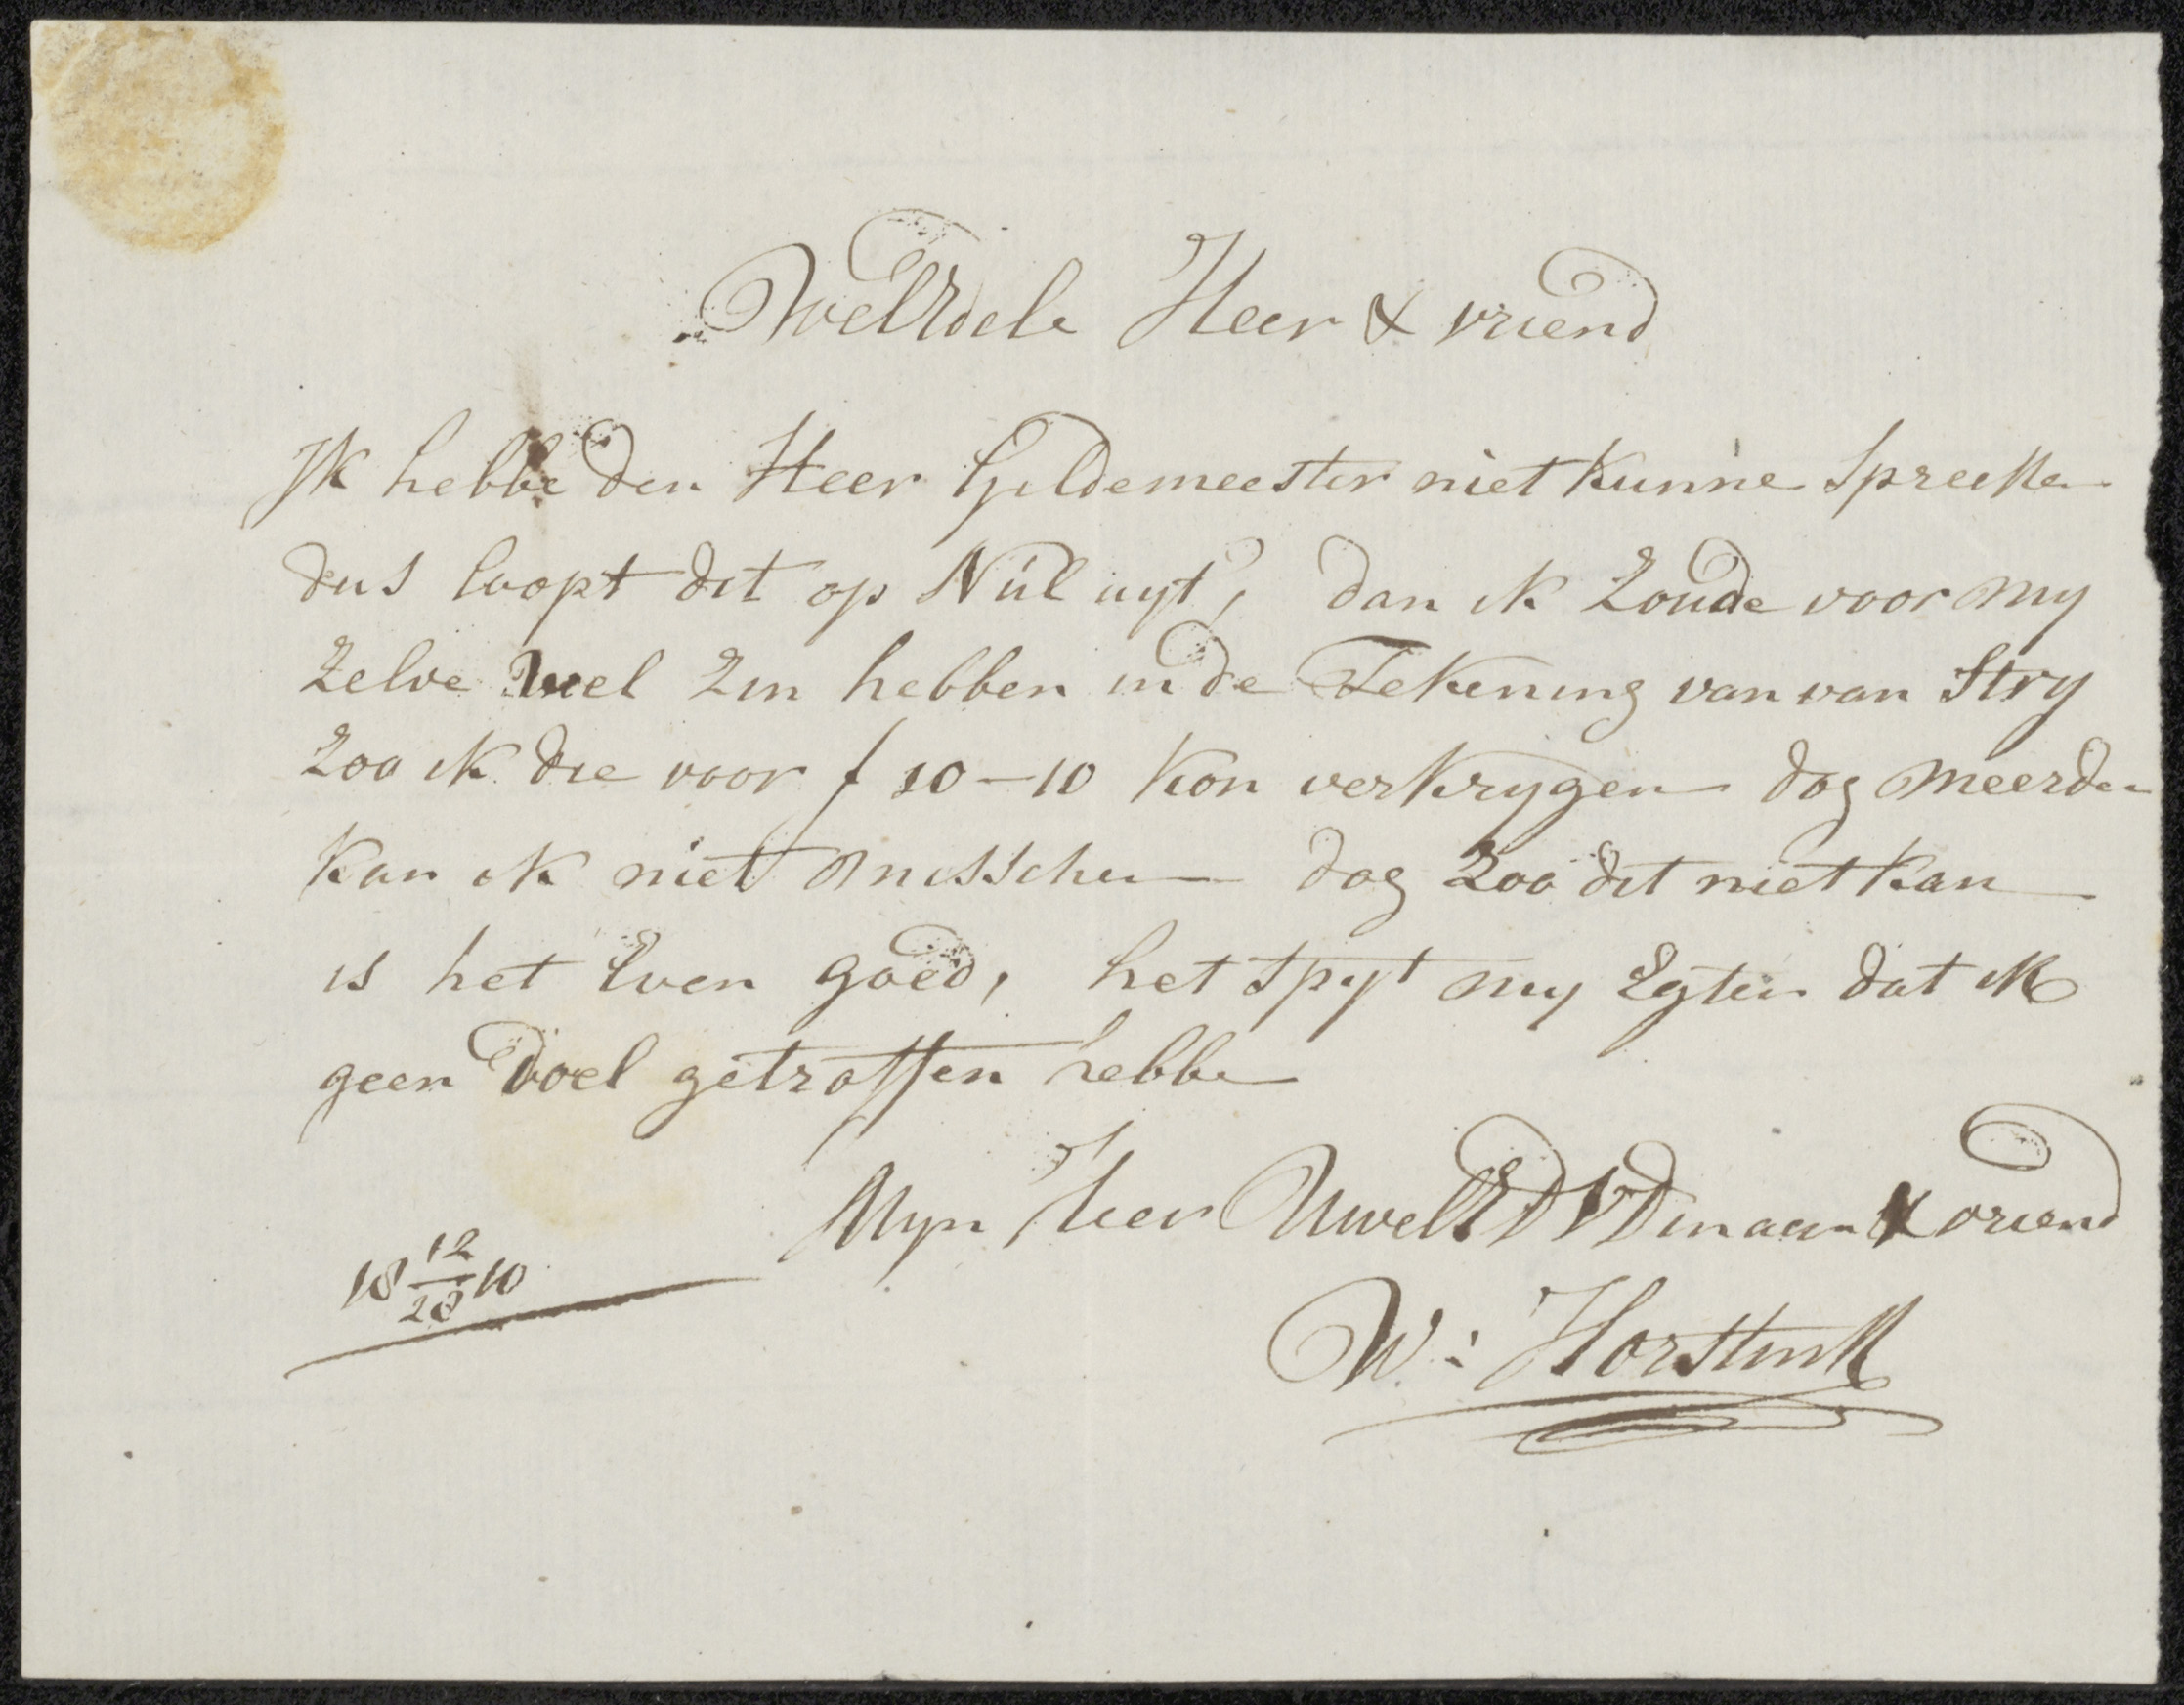 WelEdele Heer & vriend
Ik hebbe den Heer Gildemeester niet kunne Spreeke
dus loopt dit op Nul uyt, dan ik Zoude voor my
Zelve wel Zin hebben in de Tekening van van Stry
Zoo ik die voor f 10-10 kon verkrygen dog meerder
kan ik niet misschen dog Zoo dit niet kan
is het Even goed, het spyt my Egter dat ik
geen doel getroffen hebbe
Myn Heer UwelED VDinaar & vriend
18 12/28 10
W: Horstink